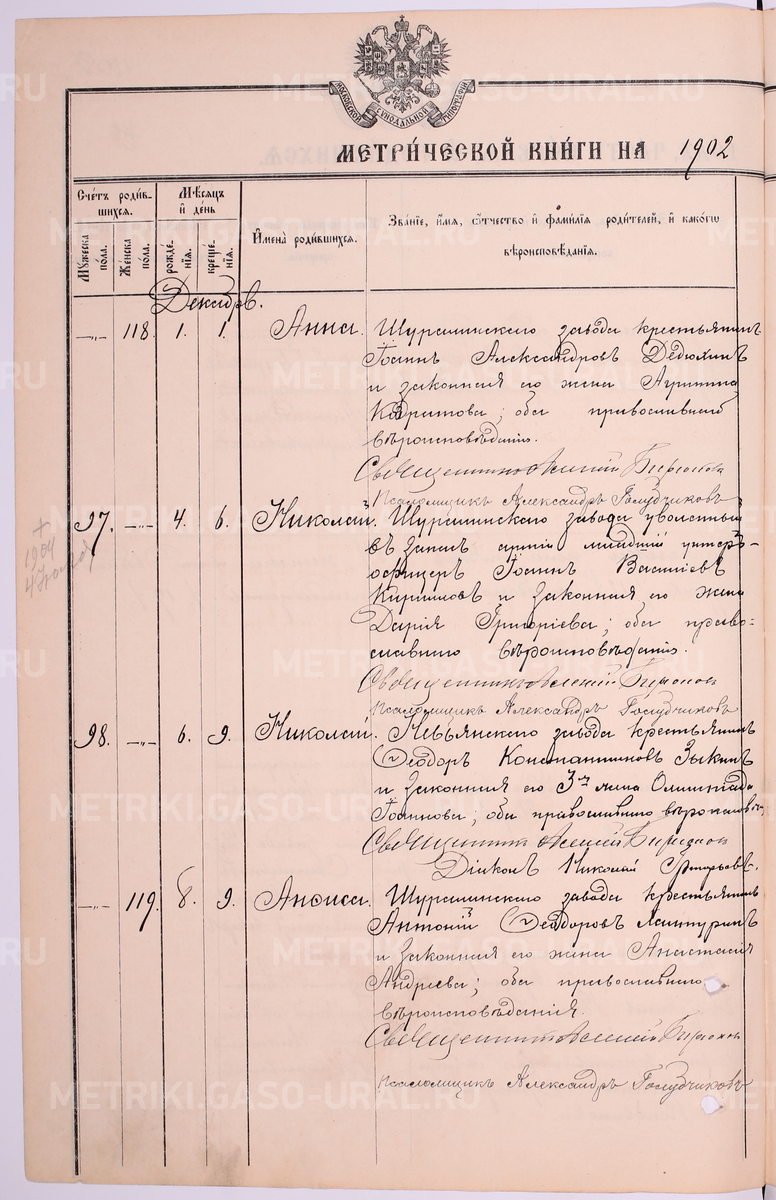 МОСКОВСКОЙ СѴНОДАЛЬНОЙ ТИПОГРАФІИ
МЕТРИ́ЧЕСКОЙ КНИ́ГИ НА 1902
Сче́тъ роди́вшихся.
Мѣ́сяцъ и҆ де́нь
И҆мена̀ роди́вшихся.
Зва́ніе, и҆́мя, ѻ҆́тчество и҆ фами́лія роди́телей, и҆ како́гѡ
вѣроисповѣ́данія.
Мꙋ́жеска по́ла.
Же́нска по́ла.
рожде́нія.
креще́нія.
Декабрь.
—"— 118. 1. 1. Анна. Шуралинскаго завода крестьянинъ
Іоаннъ Александровъ Дедюхинъ
и законная его жена Агрипина
оба православнаго
вѣроисповѣданія.
Священникъ Алексій Бирюковъ
Псаломщикъ Александръ Голубчиковъ
97. —"— 4. 6. Николай. Шуралинскаго завода уволенный
въ запас арміи младшій унтеръ-
офицеръ Іоаннъ Василіевъ
Кирилловъ и законная его жена
Дарія Григоріева; оба право-
славнаго вѣроисповѣданія.
+
1904
Священникъ Алексій Бирюковъ
Псаломщикъ Александръ Голубчиковъ
98. —"— 6. 9. Николай. Невьянскаго завода крестьянинъ
Ѳеодоръ Константиновъ Зыкинъ
и законная его жена Олимпіада
Іоаннова; оба православнаго
Священникъ Алексій Бирюковъ
Діаконъ Николай Григорьевъ.
—"— 119. 8. 9. Анѳиса. Шуралинскаго завода крестьянинъ
Антоній Ѳеодоровъ
и законная его жена Анастасія
Андріева; оба православнаго
вѣроисповѣданія
Священникъ Алексій Бирюковъ
Псаломщикъ Александръ Голубчиковъ
METRIKI.GASO-URAL.RU